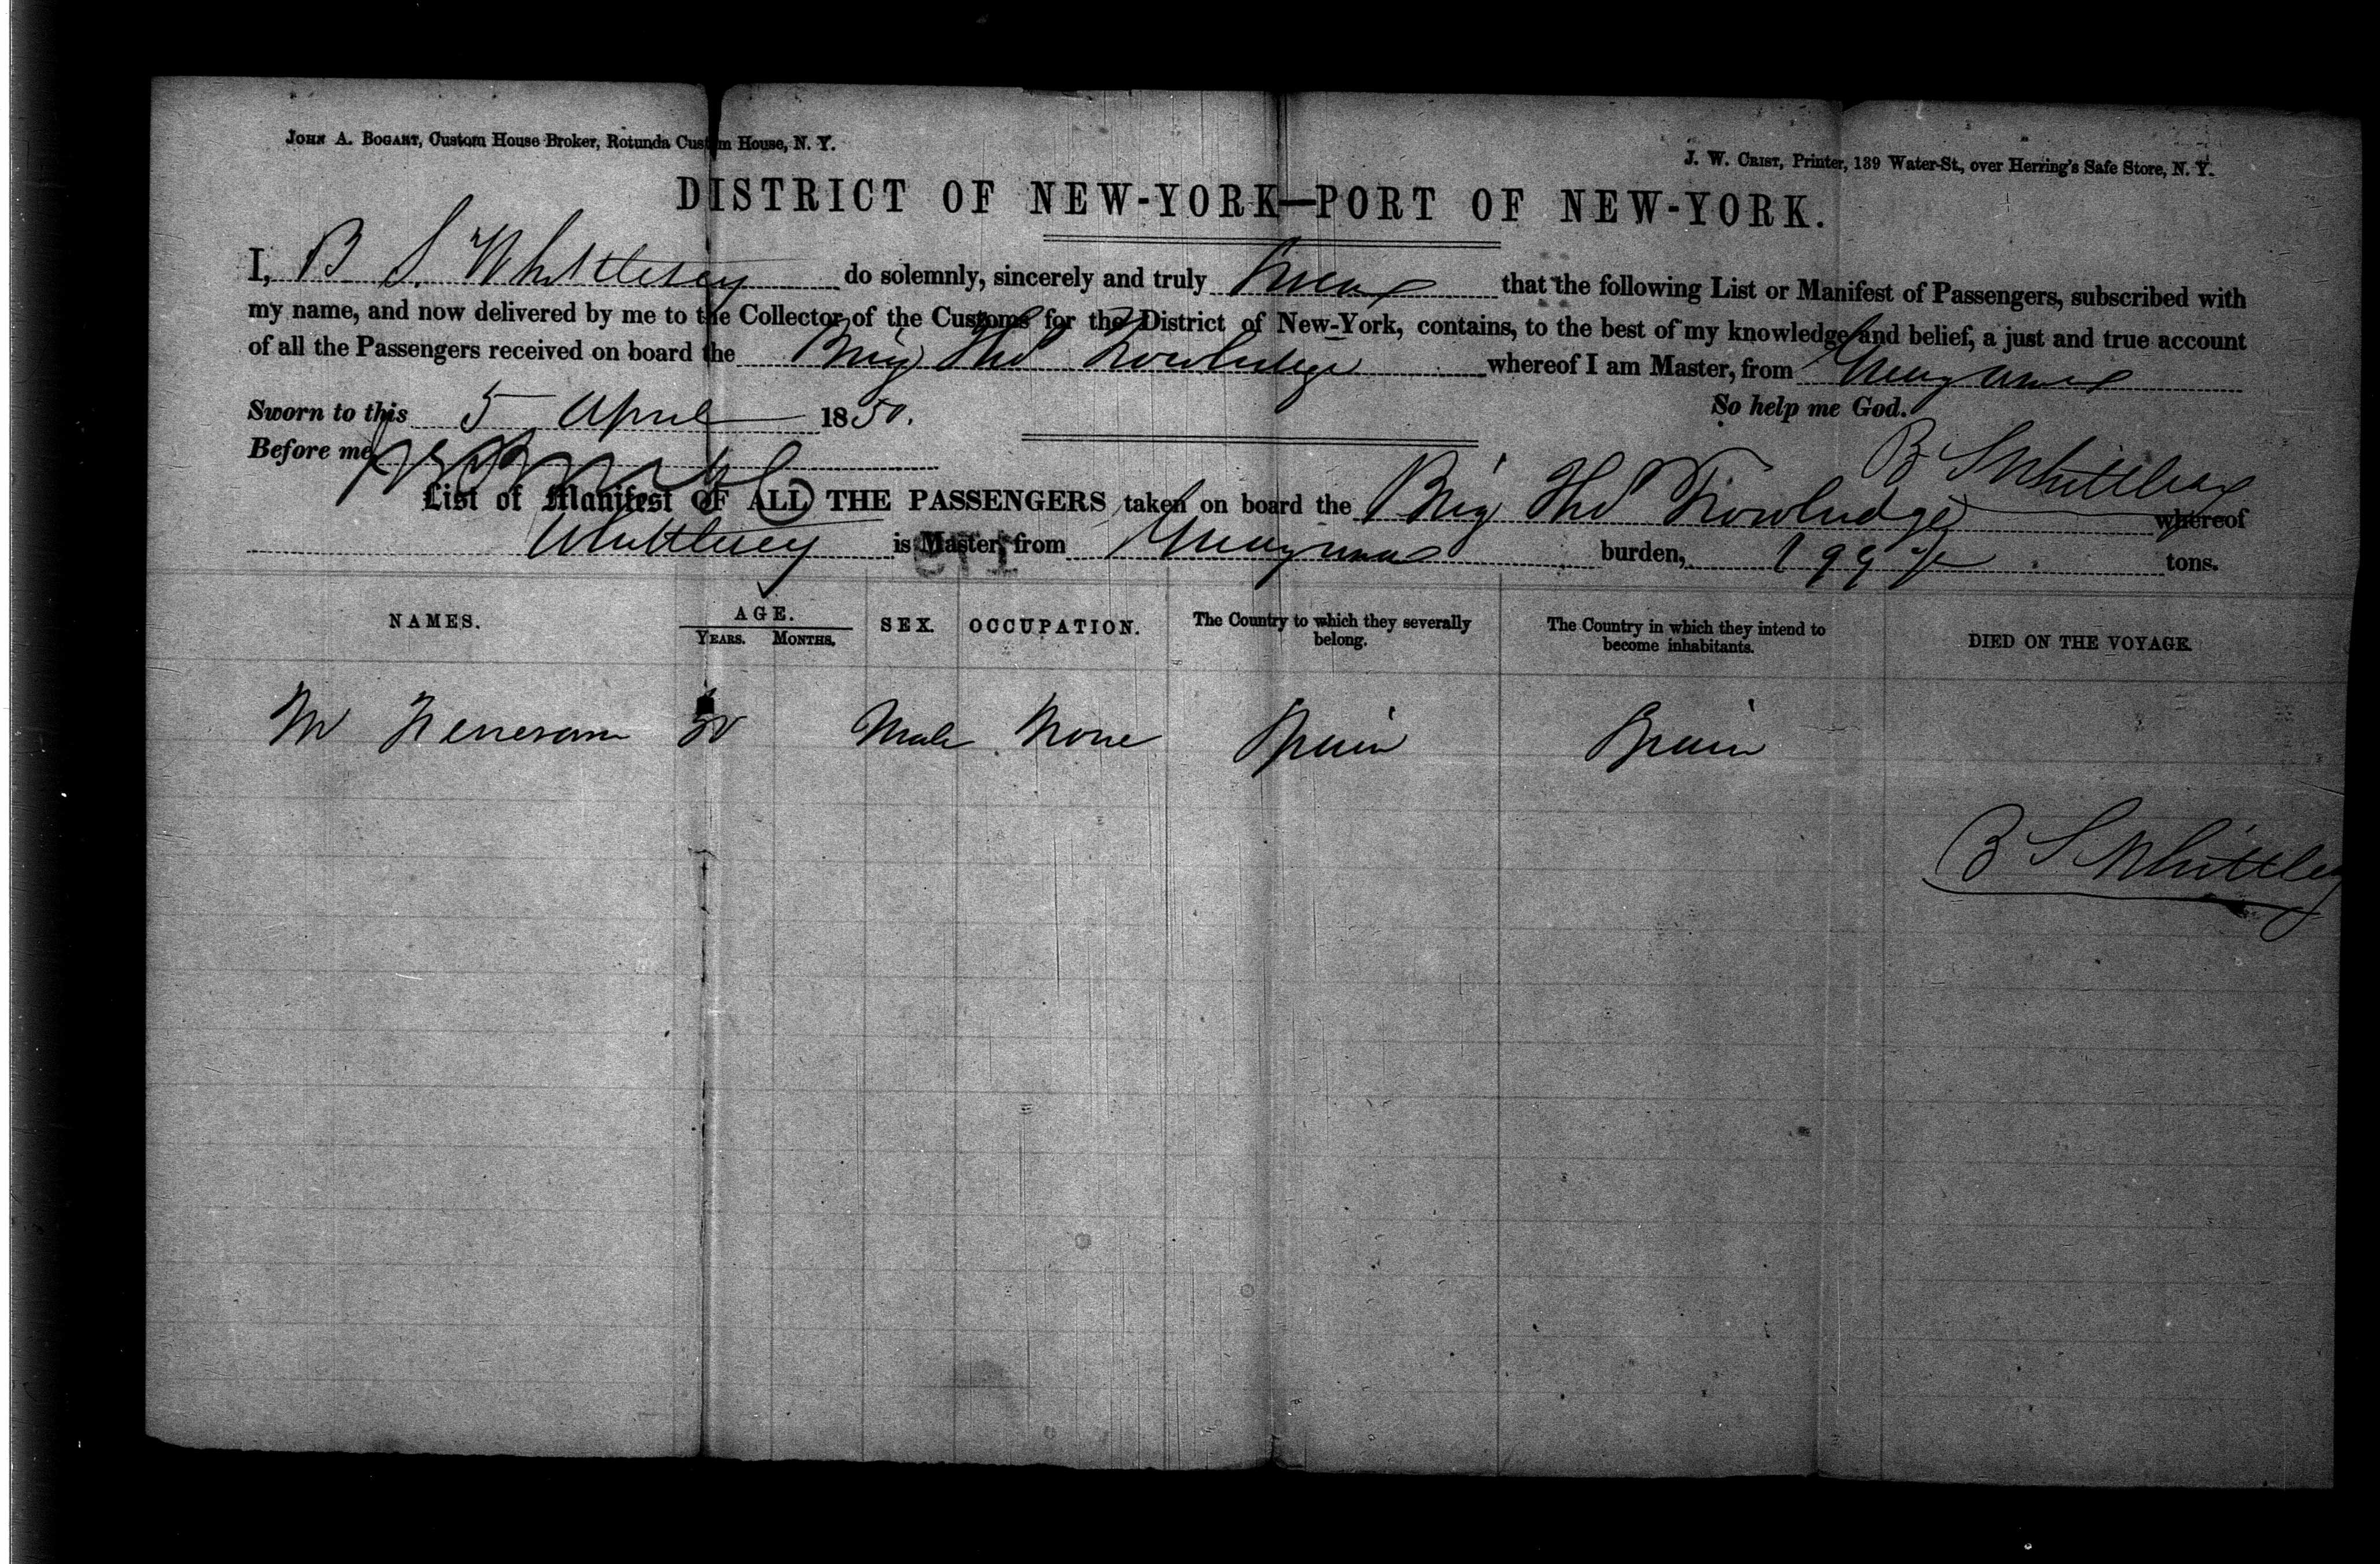 JOHN A. BOGART, Custom House Broker, Rotunda Custom House, N. Y.
J. W. CRIST, Printer, 139 Water-St., over Herring's Safe Store, N. Y.
DISTRICT OF NEW-YORK—PORT OF NEW-YORK.
I, B S. Whittlesey do solemnly, sincerely and truly Swear that the following List or Manifest of Passengers, subscribed with
my name, and now delivered by me to the Collector of the Customs for the District of New-York, contains, to the best of my knowledge and belief, a just and true account
of all the Passengers received on board the Brig Thd whereof I am Master, from Guayama
Sworn to this 5 April 1850. So help me God.
Before me
B S Whittlesey
List of Manifest OF ALL THE PASSENGERS taken on board the Brig Thd whereof
Whittlesey is Master, from Guayama burden, 199 tons.
NAMES. AGE. SEX. OCCUPATION. The Country to which they severally belong. The Country in which they intend to become inhabitants. DIED ON THE VOYAGE.
YEARS. MONTHS.
M 30 Male None Spain Spain
B S Whittlesey